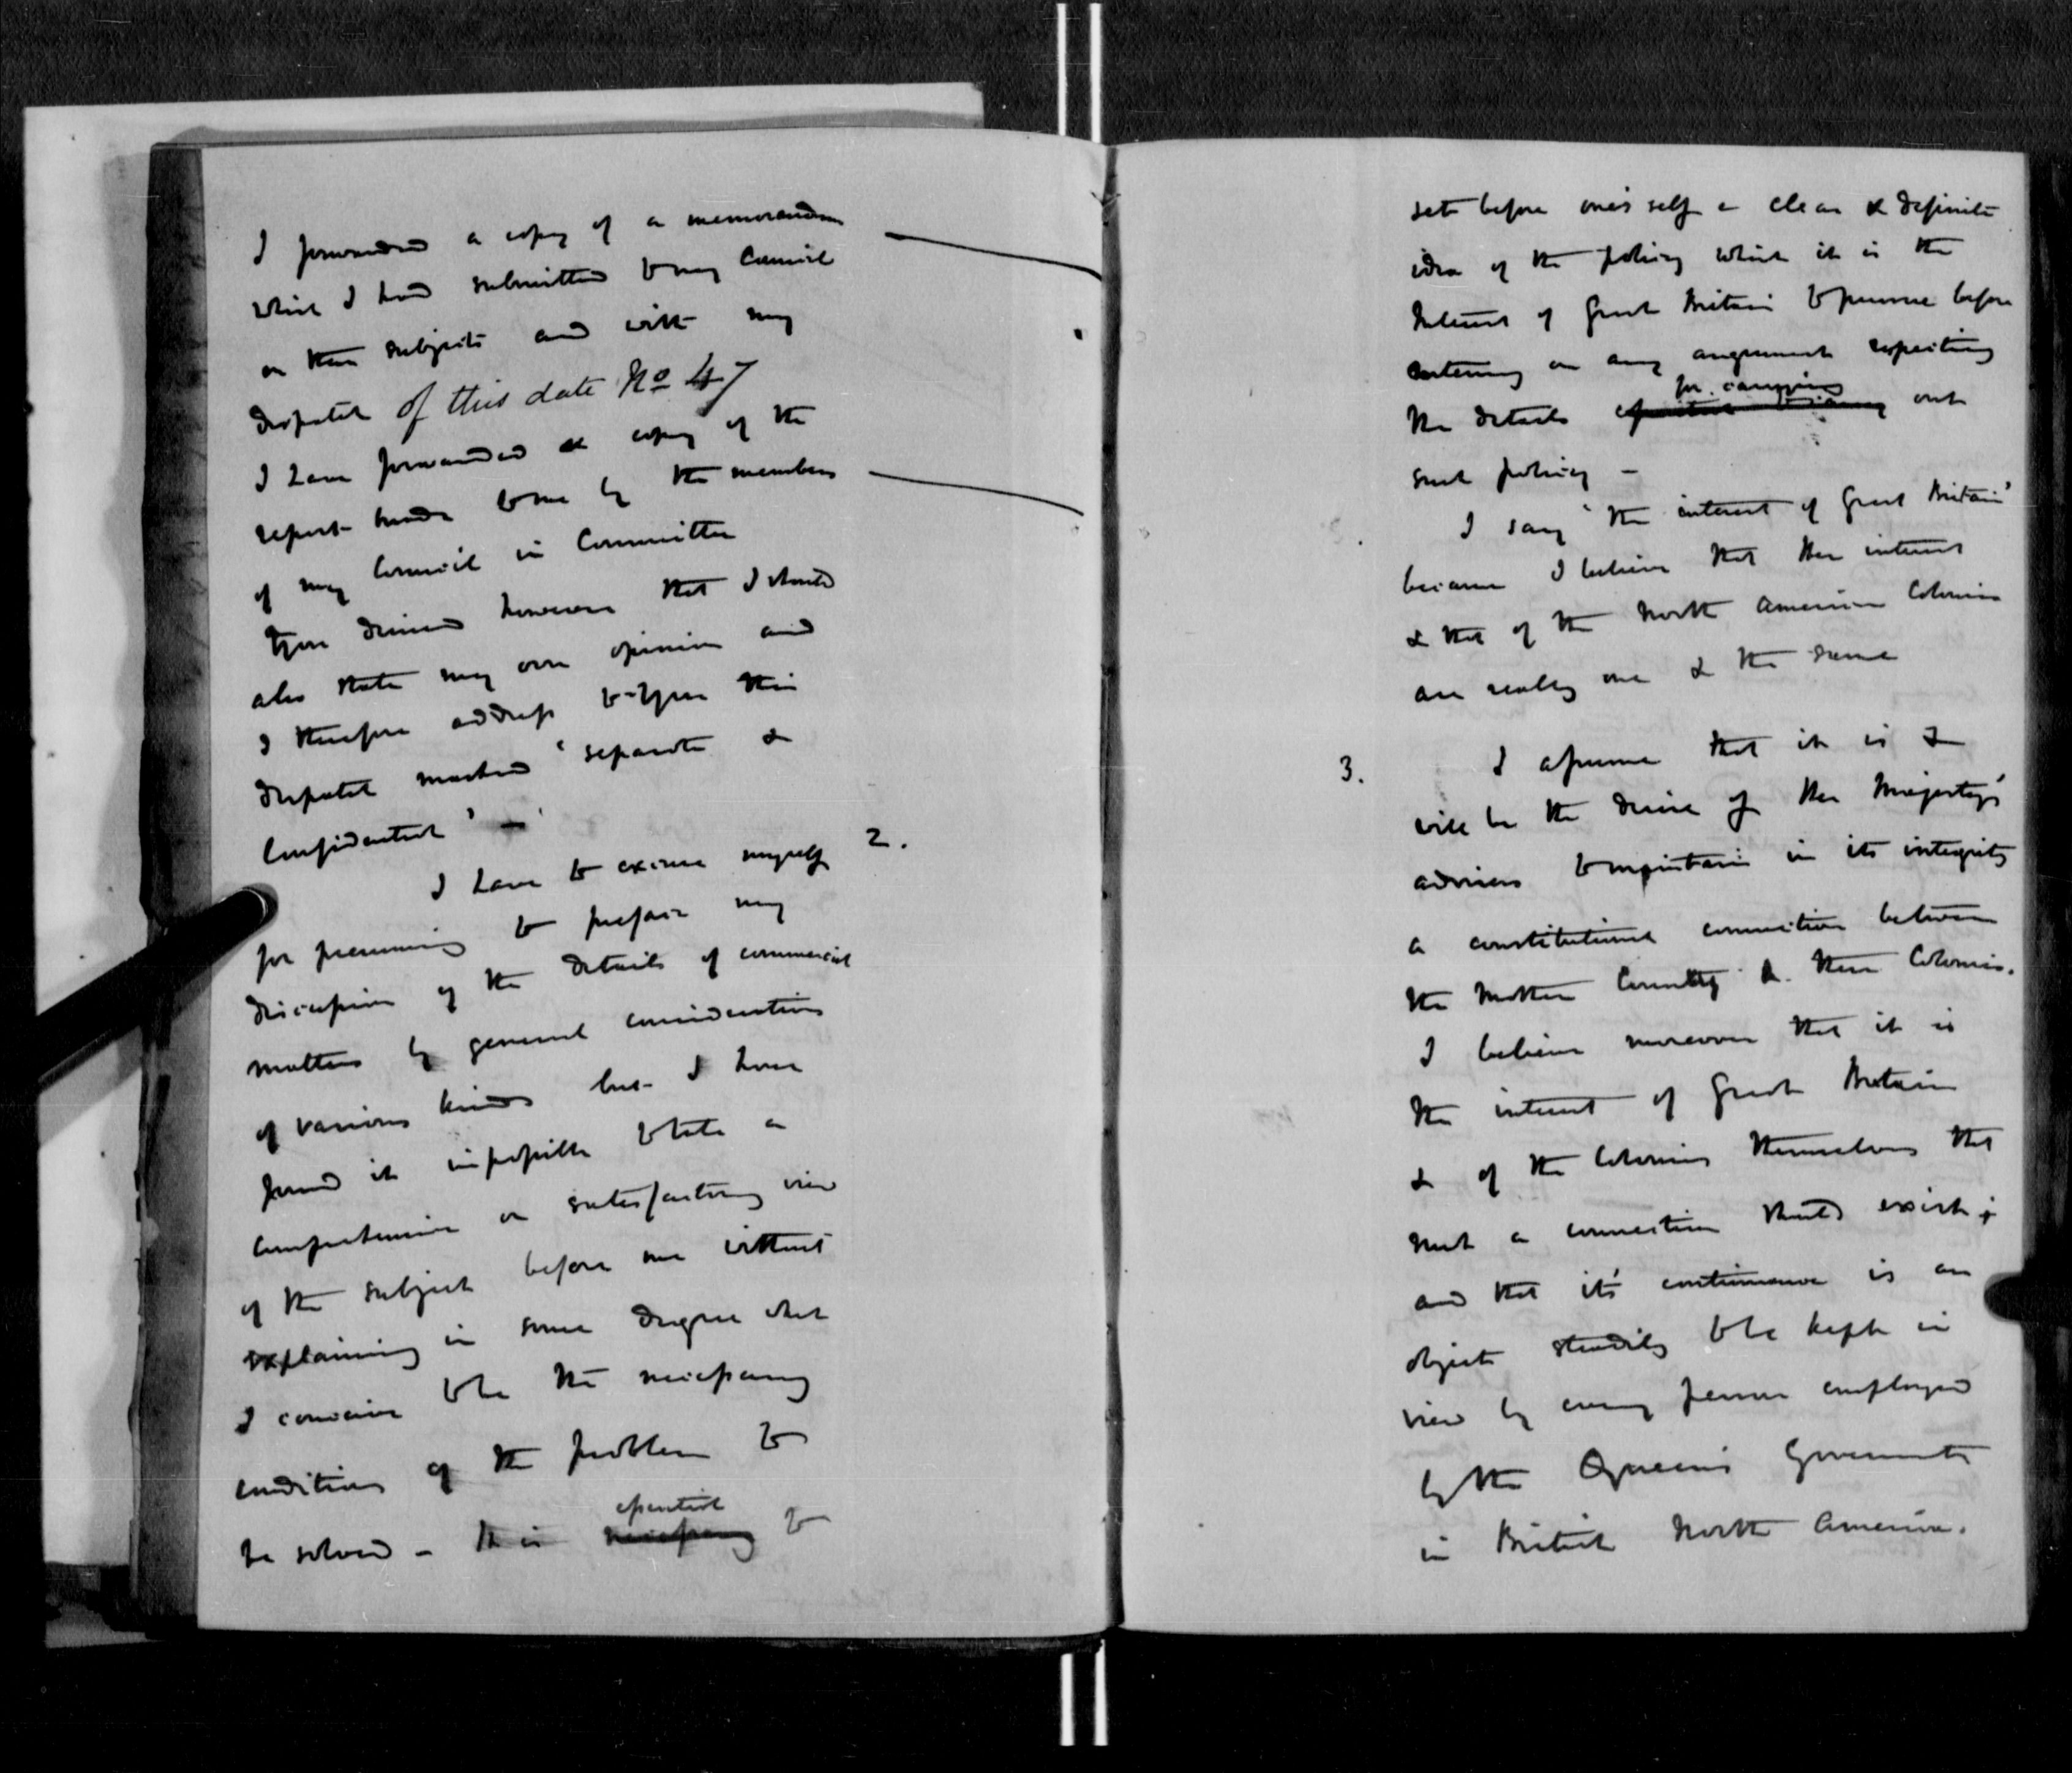 I forwarded a copy of a memorandum
which I had submitted to my Council
on these subjects and with my
Despatch of this date No 47
I have forwarded a copy of the
report made to me by the members
of my Council in Committee
You desired however that I should
also state my own opinion and
I therefore address to you this
Despatch marked "separate &
Confidential" —
2.
I have to excuse myself
for presuming to preface my
discussion of the details of commercial
matters by general considerations
of various kinds but I have
found it impossible to take a
comprehensive or satisfactory view
of the subject before me without
explaining in some degree what
I conceive to be the necessary
conditions of the problem to
be solved – It is necessary essential to
set before one's self a clear & definite
idea of the policy which it is the
Interest of Great Britain to pursue before
entering on any argument respecting
for carrying
the details out
such policy –
I say "the interest of Great Britain"
because I believe that her interest
& that of the North American Colonies
are really one & the same
3.
I assume that it is &
will be the desire of Her Majesty's
advisers to maintain in its integrity
a constitutional connection between
the Mother Country & these Colonies.
I believe moreover that it is
the interest of Great Britain
& of the Colonies themselves that
such a connection should exist;
and that it's continuance is an
object steadily to be kept in
view by every person employed
by the Queen's Government
in British North America.